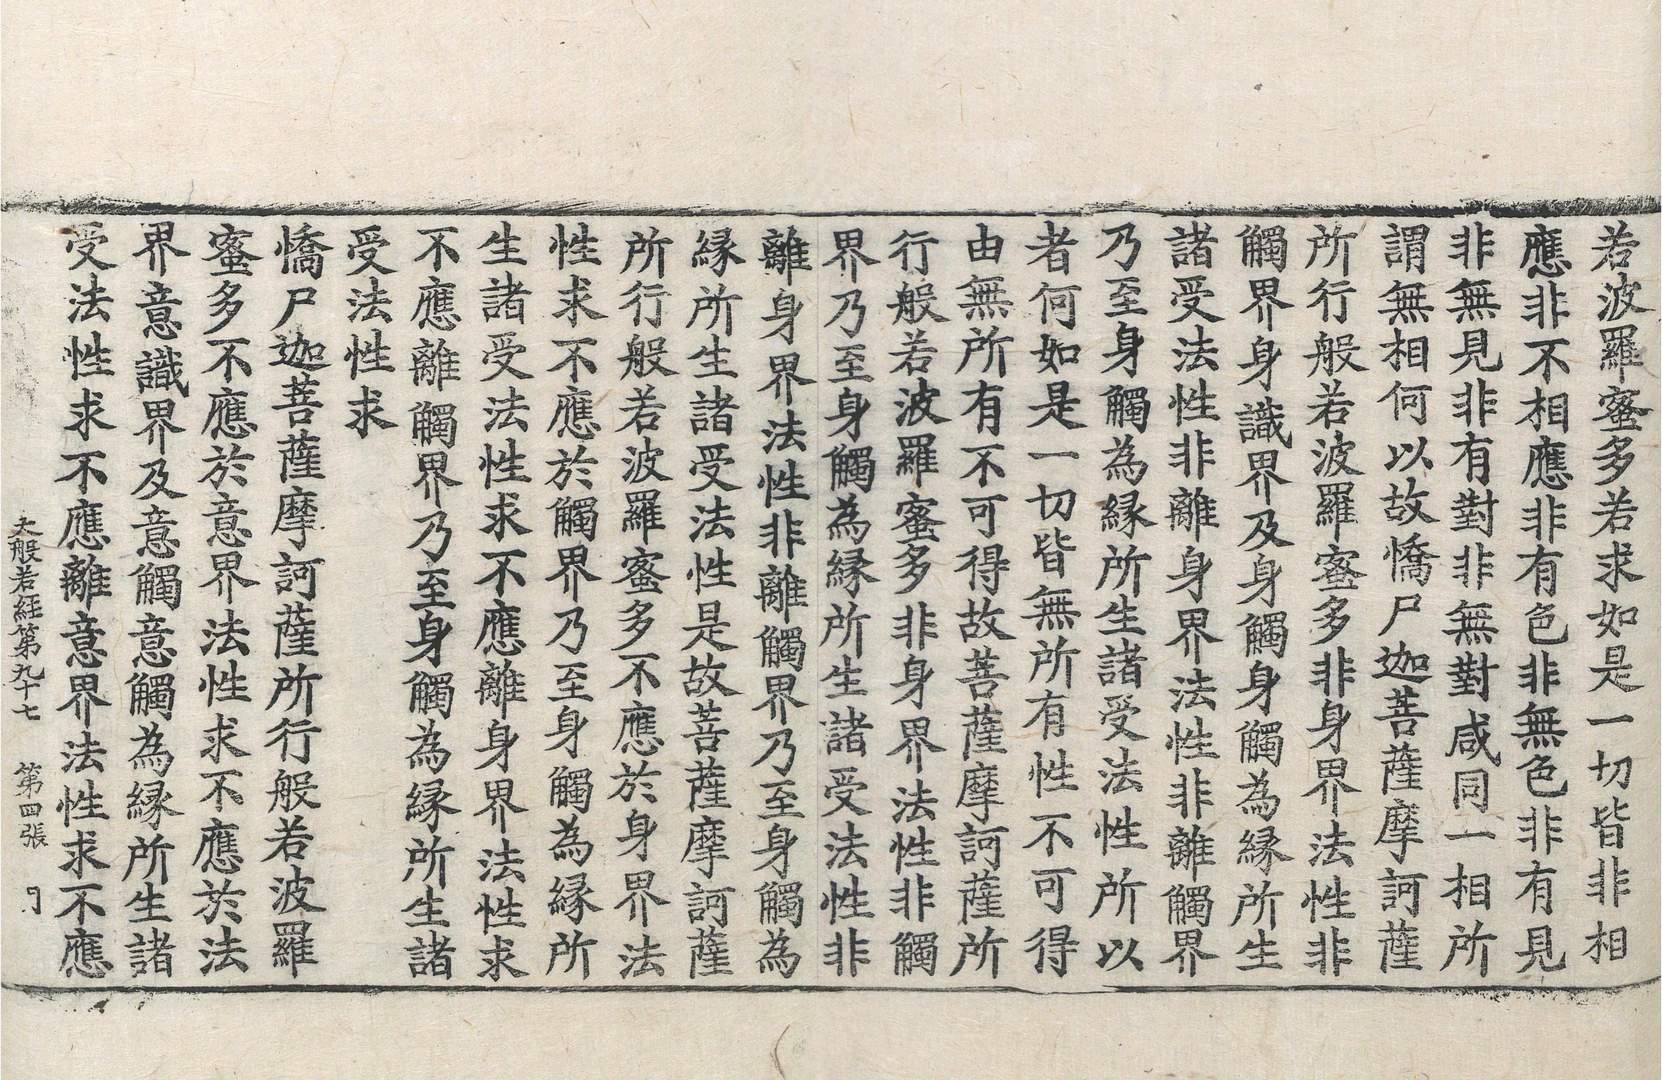 若波羅蜜多若求如是一切皆非相
應非不相應非有色非無色非有見
非無見非有對非無對咸同一相所
謂無相何以故憍尸迦菩薩摩訶薩
所行般若波羅蜜多非身界法性非
觸界身識界及身觸身觸為縁所生
諸受法性非離身界法性非離觸界
乃至身觸為縁所生諸受法性所以
者何如是一切皆無所有性不可得
由無所有不可得故菩薩摩訶薩所
行般若波羅蜜多非身界法性非觸
界乃至身觸為縁所生諸受法性非
離身界法性非離觸界乃至身觸為
縁所生諸受法性是故菩薩摩訶薩
所行般若波羅蜜多不應於身界法
性求不應於觸界乃至身觸為縁所
生諸受法性求不應離身界法性求
不應離觸界乃至身觸為縁所生諸
受法性求
憍尸迦菩薩摩訶薩所行般若波羅
蜜多不應於意界法性求不應於法
界意識界及意觸意觸為縁所生諸
受法性求不應離意界法性求不應
大般若経第九十七 第四張